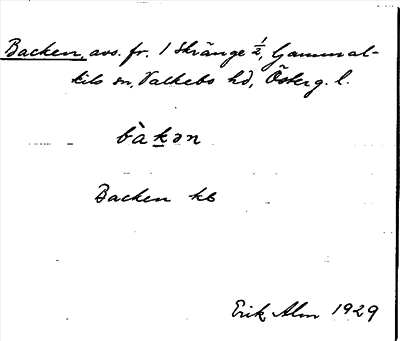 Backen, avs. fr. 1 Skränge ½, Gammal-
kils sn, Valkebo hd, Österg. l.
bàkən
Backen kb
Erik Alm 1929